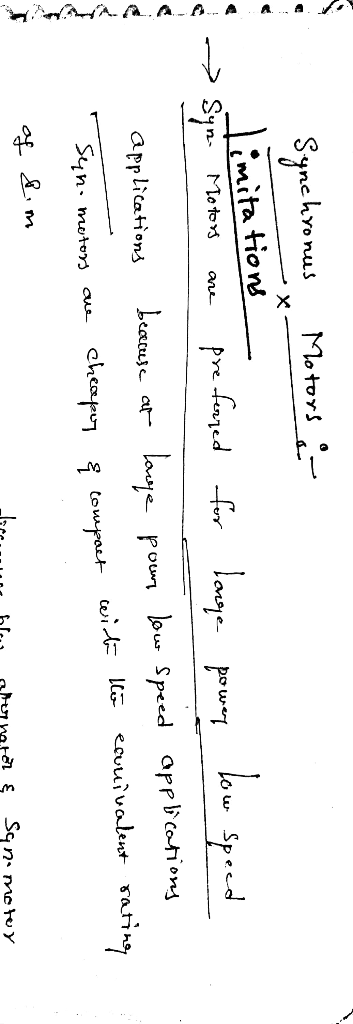 Synchronus Motors :-
Limitations
→ Syn. Motors are preferred for large power low speed
applications because at large power low speed applications
Syn. motors are cheaper & compact with the equivalent rating
of I.m
differences b/w alternator & Syn. motor